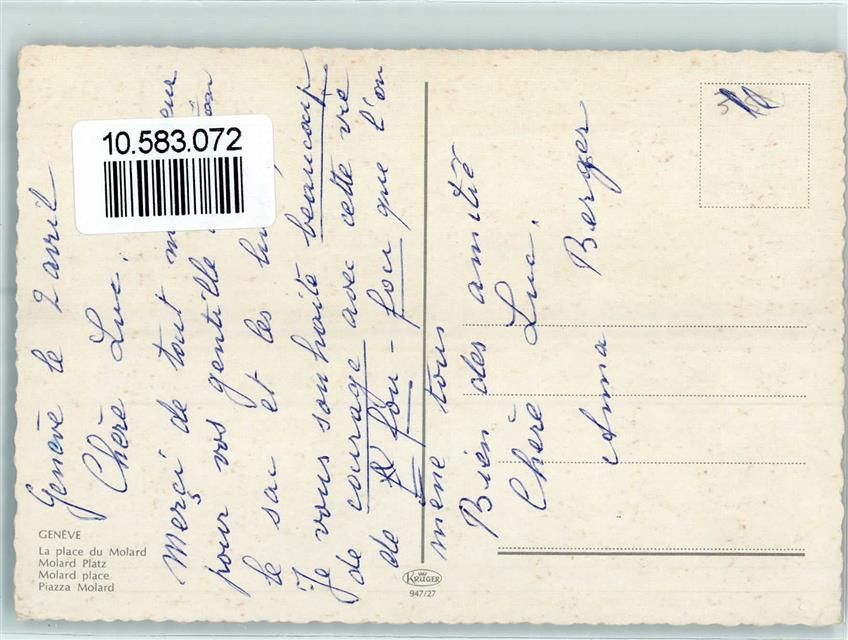 Genève le 2 avril
Chère Luc.
Merçi de tout
pour vos gentille
le sac et les
Je vous souhaite beaucoup
de courage avec cette vie
de fou - fou que l'on
mène tous
Bien des amitié
Chère Luc.
Anna Berger
10.583.072
GENÈVE
La place du Molard
Molard Platz
Molard place
Piazza Molard
KRÜGER
947/27